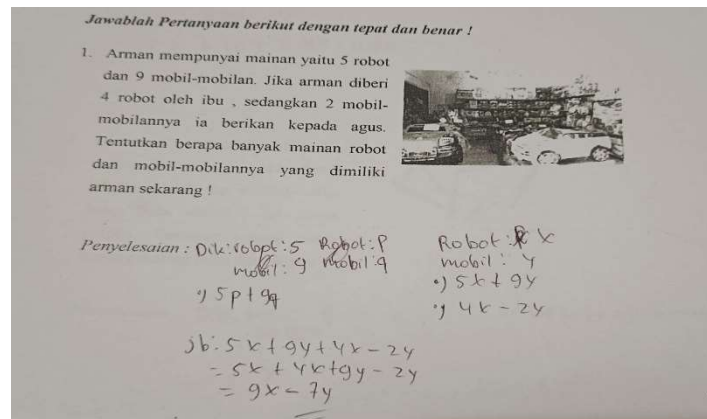 Jawablah Pertanyaan berikut dengan tepat dan benar !
1. Arman mempunyai mainan yaitu 5 robot
dan 9 mobil-mobilan. Jika arman diberi
4 robot oleh ibu , sedangkan 2 mobil-
mobilannya ia berikan kepada agus.
Tentutkan berapa banyak mainan robot
dan mobil-mobilannya yang dimiliki
arman sekarang !
Penyelesaian : Dik: robot : 5 Robot : P
mobil : 9 mobil : q
•) 5p + 9q
Robot : x
mobil : y
•) 5x + 9y
•) 4x - 2y
jb: 5x + 9y + 4x - 2y
= 5x + 4x + 9y - 2y
= 9x - 7y